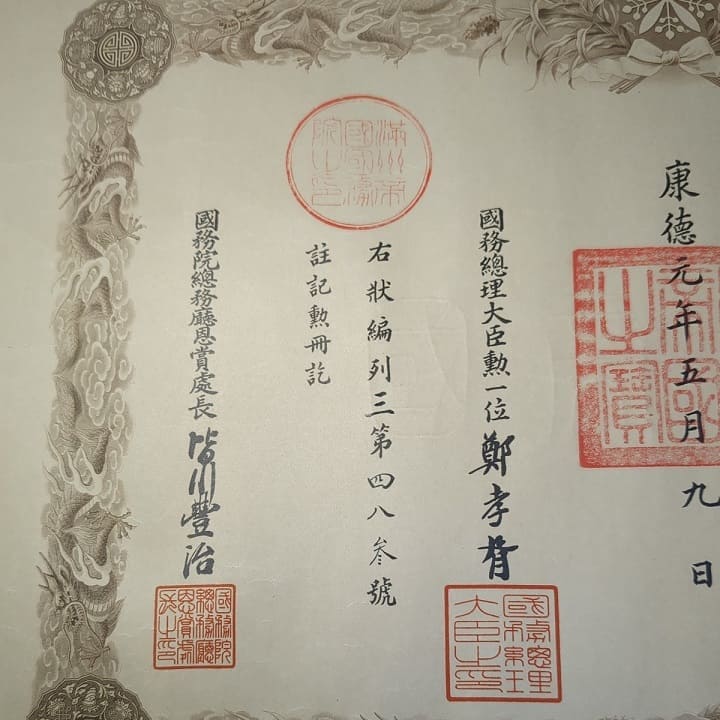 康德元年五月九日
國務總理大臣勲一位鄭孝胥
右狀編列三第四八叄號
註記勲冊訖
國務院總務廳恩賞處長皆川豐治
國務總理大臣之印
國務院總務廳恩賞處長之印